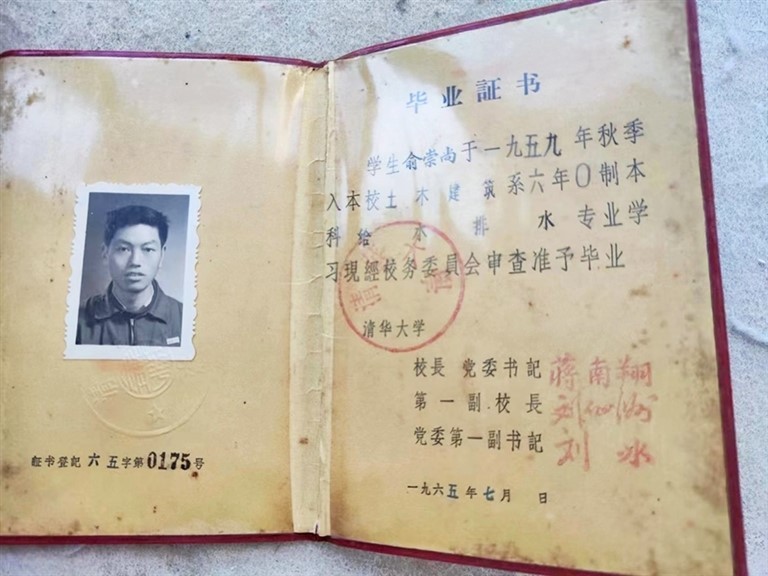 証书登記 六五字第0175号
毕业証书
学生俞崇尚于一九五九年秋季
入本校土木建筑系六年〇制本
科给水排水专业学
习現經校务委員会审查准予毕业
清华大学
校長 党委书記 蒋南翔
第一副校長 刘仙洲
党委第一副书記 刘冰
一九六五年七月 日